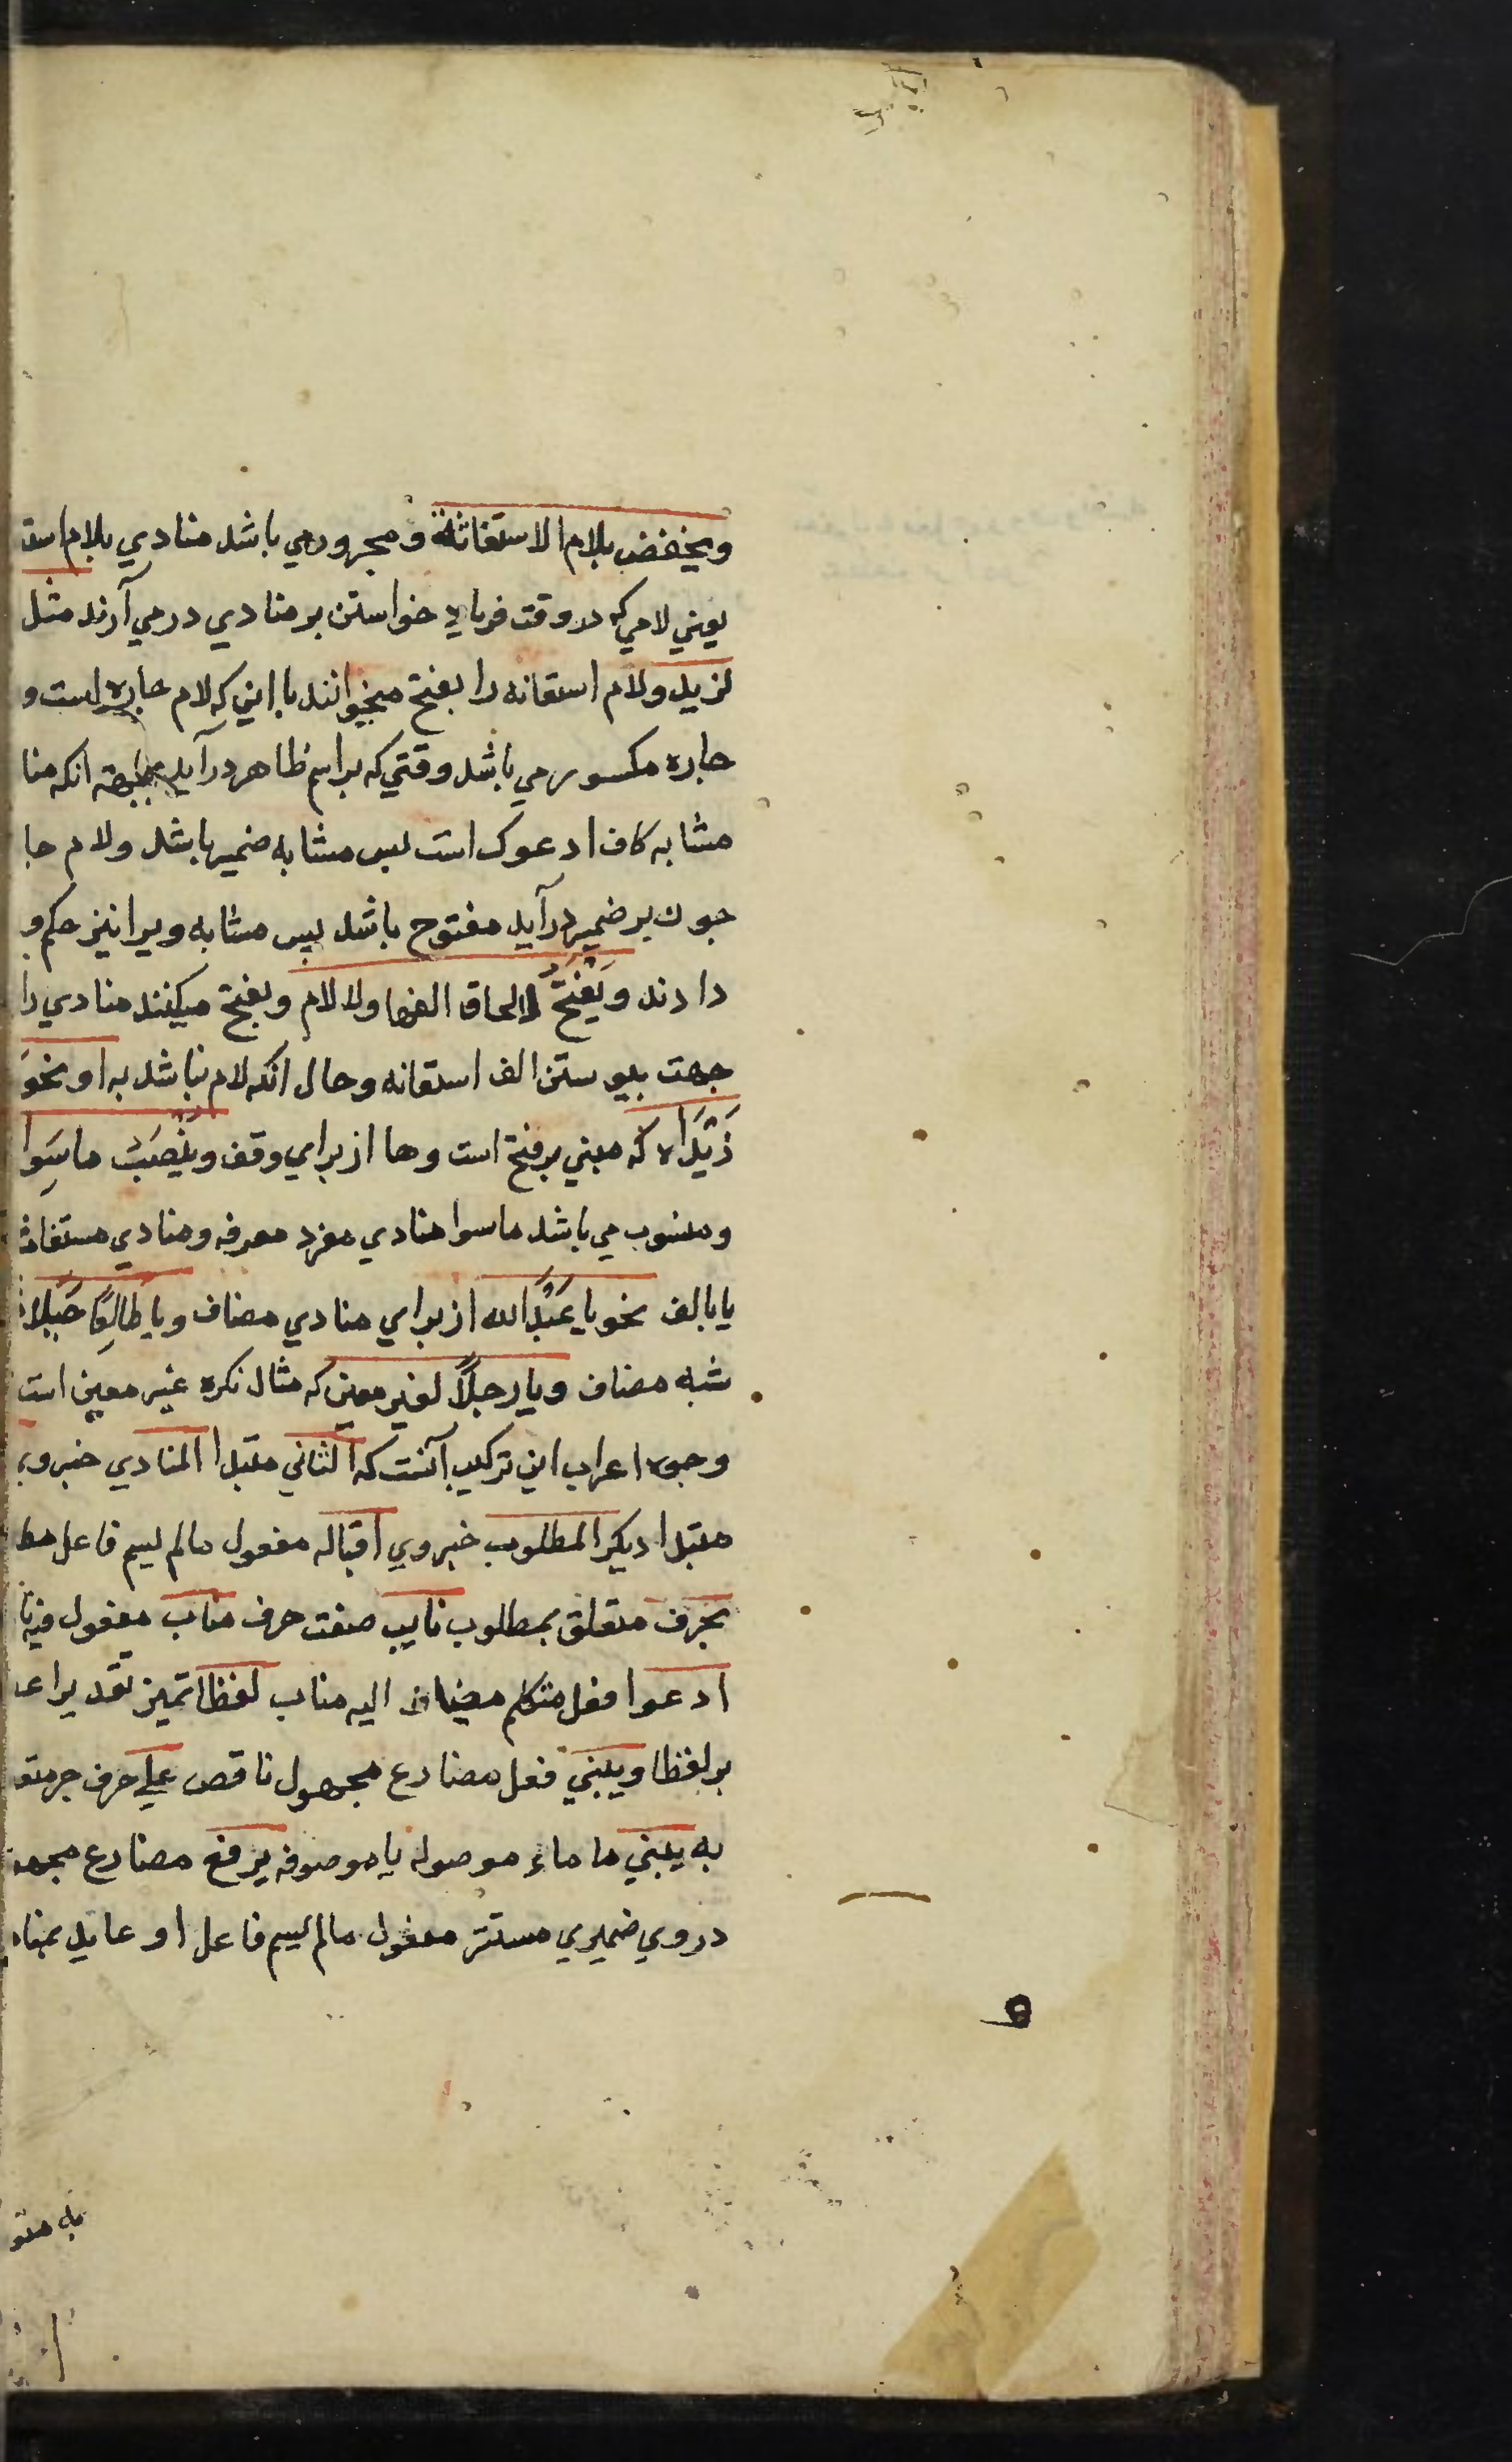 ويخفض بلام الاستغاثة و مجرور مي باشد منادي بلام است
يعني لامي که در وقت فرياد خواستن بر منادي در مي آرند مثل
لزيد ولام استغاثه را بفتح ميخوانند با اين که لام جاره است و
جاره مکسور مي باشد وقتي که بر اسم ظاهر درآيد بجهة انکه منا
مشابه کاف ادعوک است پس مشابه ضمير باشد ولام جا
چون بر ضمير درآيد مفتوح باشد پس مشابه ويرا نيز حکم و
دادند وَيُفْتَحُ لالحاق الفها ولا لام وبفتح ميکنند منادي را
جهت پيوستن الف استغاثه وحال انکه لام نباشد به او نحوَ
زَيْدَاه که مبني بر فتح است وها از براي وقف ويُنْصَبُ ماسِوا
ومنصوب مي باشد ماسوا منادي مفرد معرفه ومنادي مستغاث
يا بالف نحو يا عَبْدَ الله از براي منادي مضاف ويا طالِعًا جَبَلًا
شبه مضاف ويا رجلاً لغير معين که مثال نکره غير معين است
وجوه اعراب اين ترکيب آنست که الثاني مبتدا المنادي خبر وي
مبتدا ديکر المطلوب خبر وي اقباله مفعول مالم يسم فاعل مط
بحرف متعلق بمطلوب نايب صفت حرف مناب مفعول فيه نا
ادعوا فعل متکلم مضاف اليه مناب لفظا تميز تقديرا عـ
بر لفظا ويبني فعل مضارع مجهول ناقص علي حرف جر متعـ
به يبني ما ماء موصوله يا موصوفه يرفع مضارع مجهـ
در وي ضميري مستتر مفعول مالم يسم فاعل او عايد بماء
به متعـ